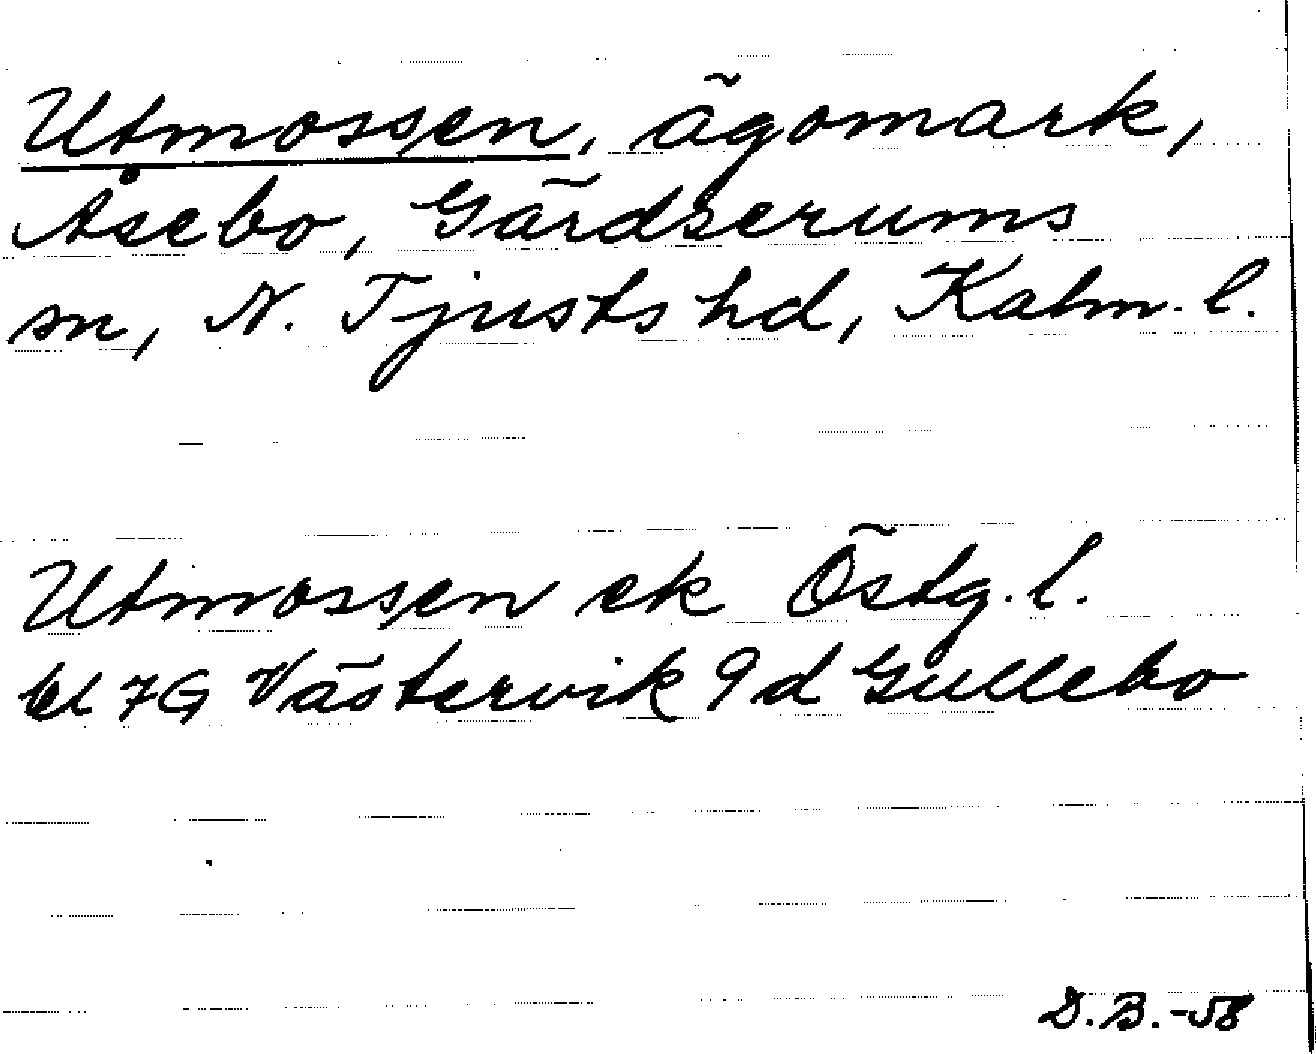 Utmossen, ägomark,
Åsebo, Gärdserums
sn, N. Tjusts hd, Kalm. l.
Utmossen ek Östg. l.
bl 7G Västervik 9d Gullebo
D.B.-58